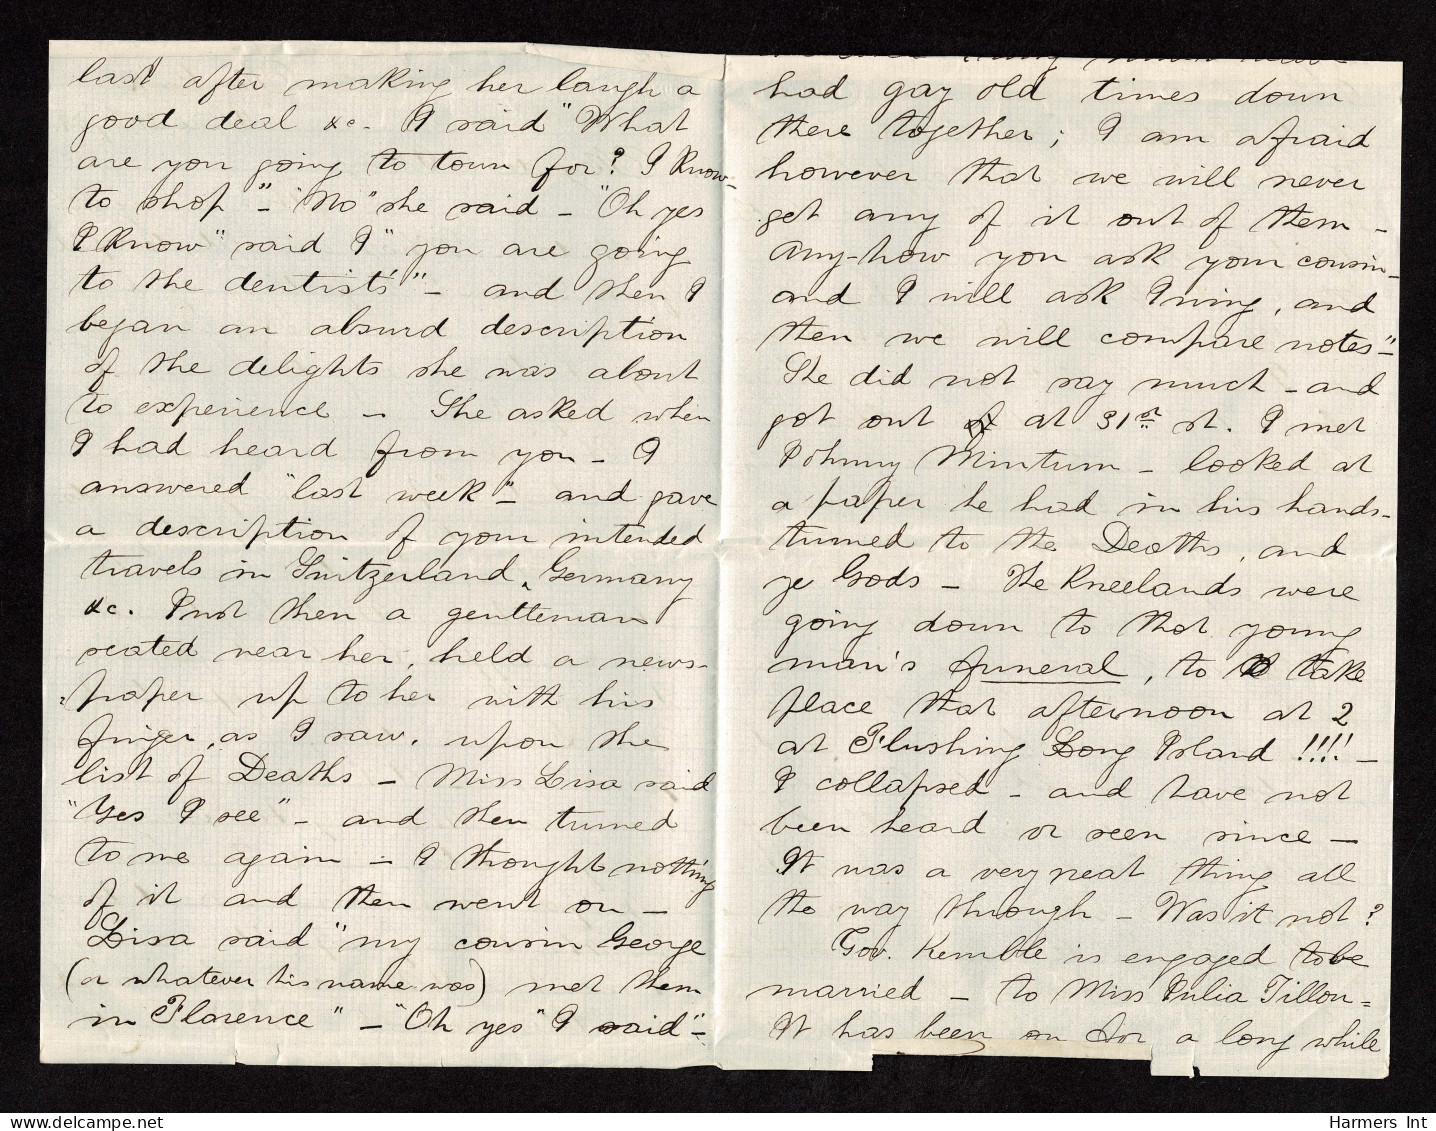 last after making her laugh a
good deal &c. I said "What
are you going to town for? I know-
to shop" - "No" she said - "Oh yes
I know" said I "you are going
to the dentist's" - and then I
began an absurd description
of the delights she was about
to experience - She asked when
I had heard from you - I
answered "last week" - and gave
a description of your intended
travels in Switzerland, Germany
&c. Just then a gentleman
seated near her, held a news-
paper up to her with his
finger, as I saw, upon the
list of Deaths - Miss Lisa said
"Yes I see" - and then turned
to me again - I thought nothing
of it and then went on -
Lisa said "my cousin George
(or whatever his name was) met them
in Florence" - "Oh yes" I said" -
had gay old times down
there together; I am afraid
however that we will never
get any of it out of them -
any-how you ask your cousin -
and I will ask Irving, and
then we will compare notes" -
She did not say much - and
got out at 31st st. I met
Johnny Minturn - looked at
a paper he had in his hands -
turned to the Deaths, and
ye Gods - The Kneelands were
going down to that young
man's funeral, to take
place that afternoon at 2
at Flushing Long Island !!!! -
I collapsed - and have not
been heard or seen since -
It was a very neat thing all
the way through - Was it not?
Gov. Kemble is engaged to be
married - to Miss Julia Tillou -
It has been on for a long while
Harmers Int
delcampe.net